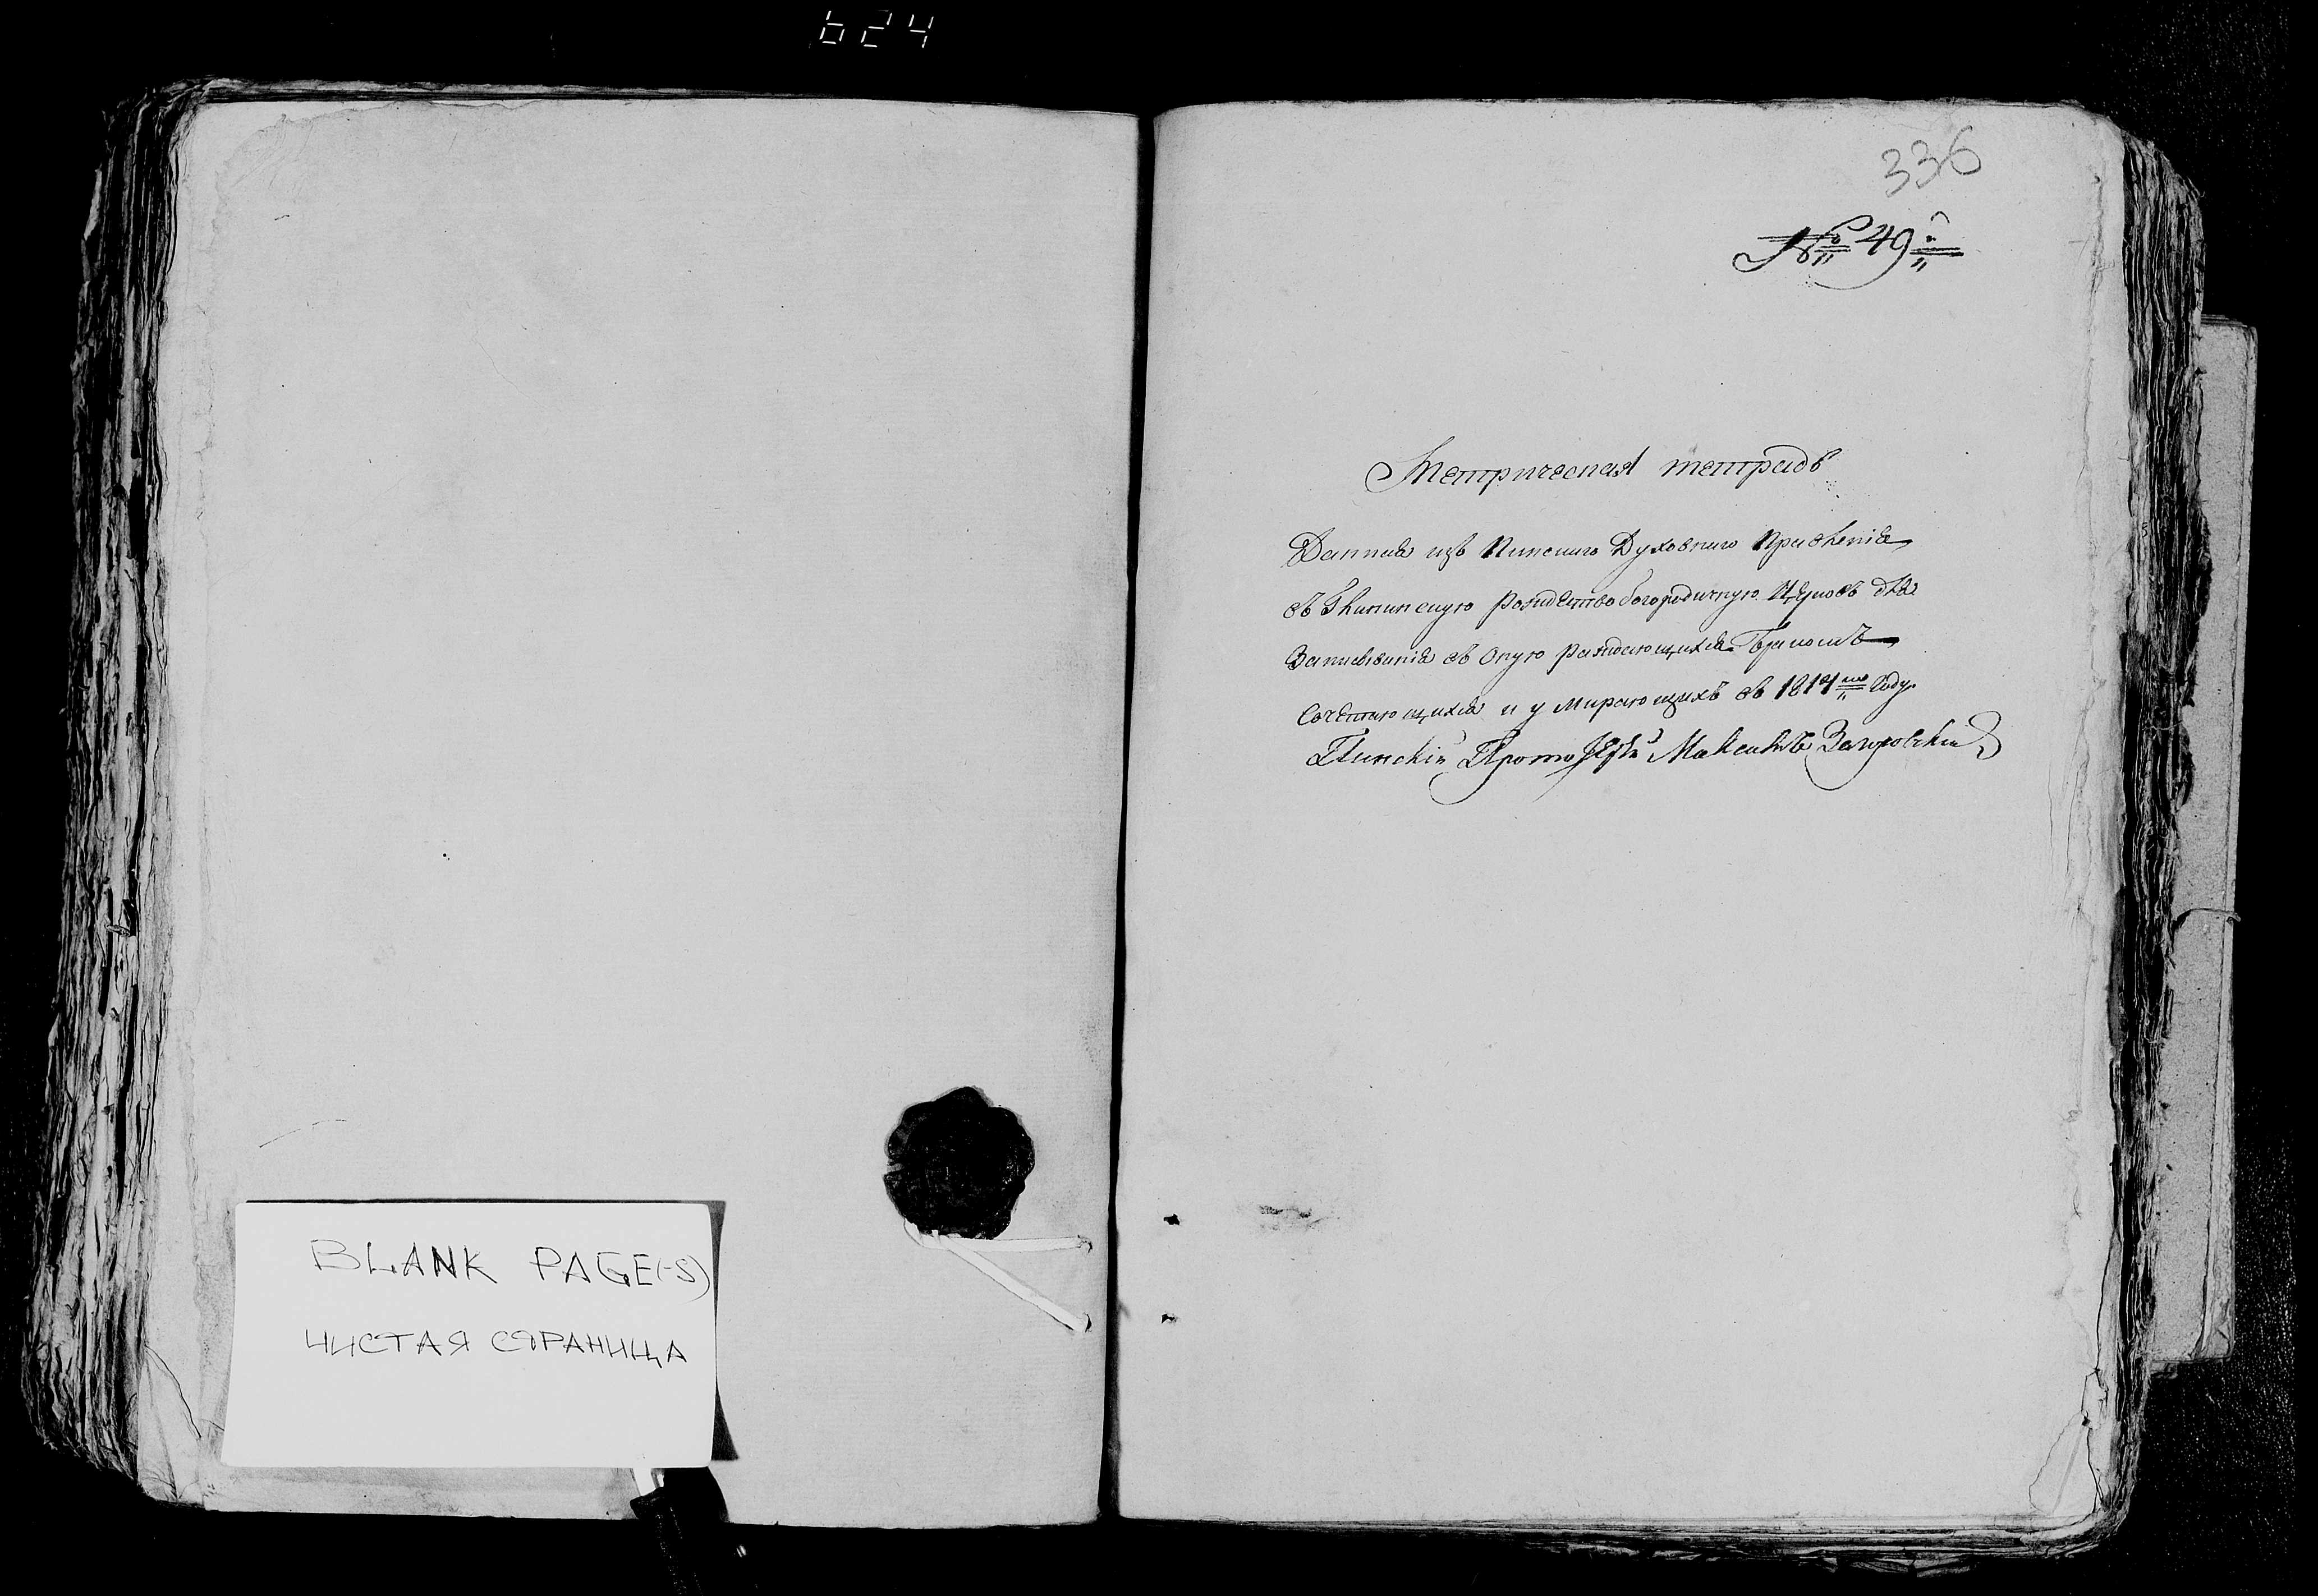 624
BLANK PAGE(-S)
ЧИСТАЯ СТРАНИЦА
336
№ 49й
Метрическая тетрадь
Данная изъ Пинскаго Духовнаго Правленія
въ рождествобогородичную Церковь для
Записыванія въ оную раждающихся бракомъ
Сочетающихся и умирающихъ въ году
Пинскій Протоіерей Максимъ